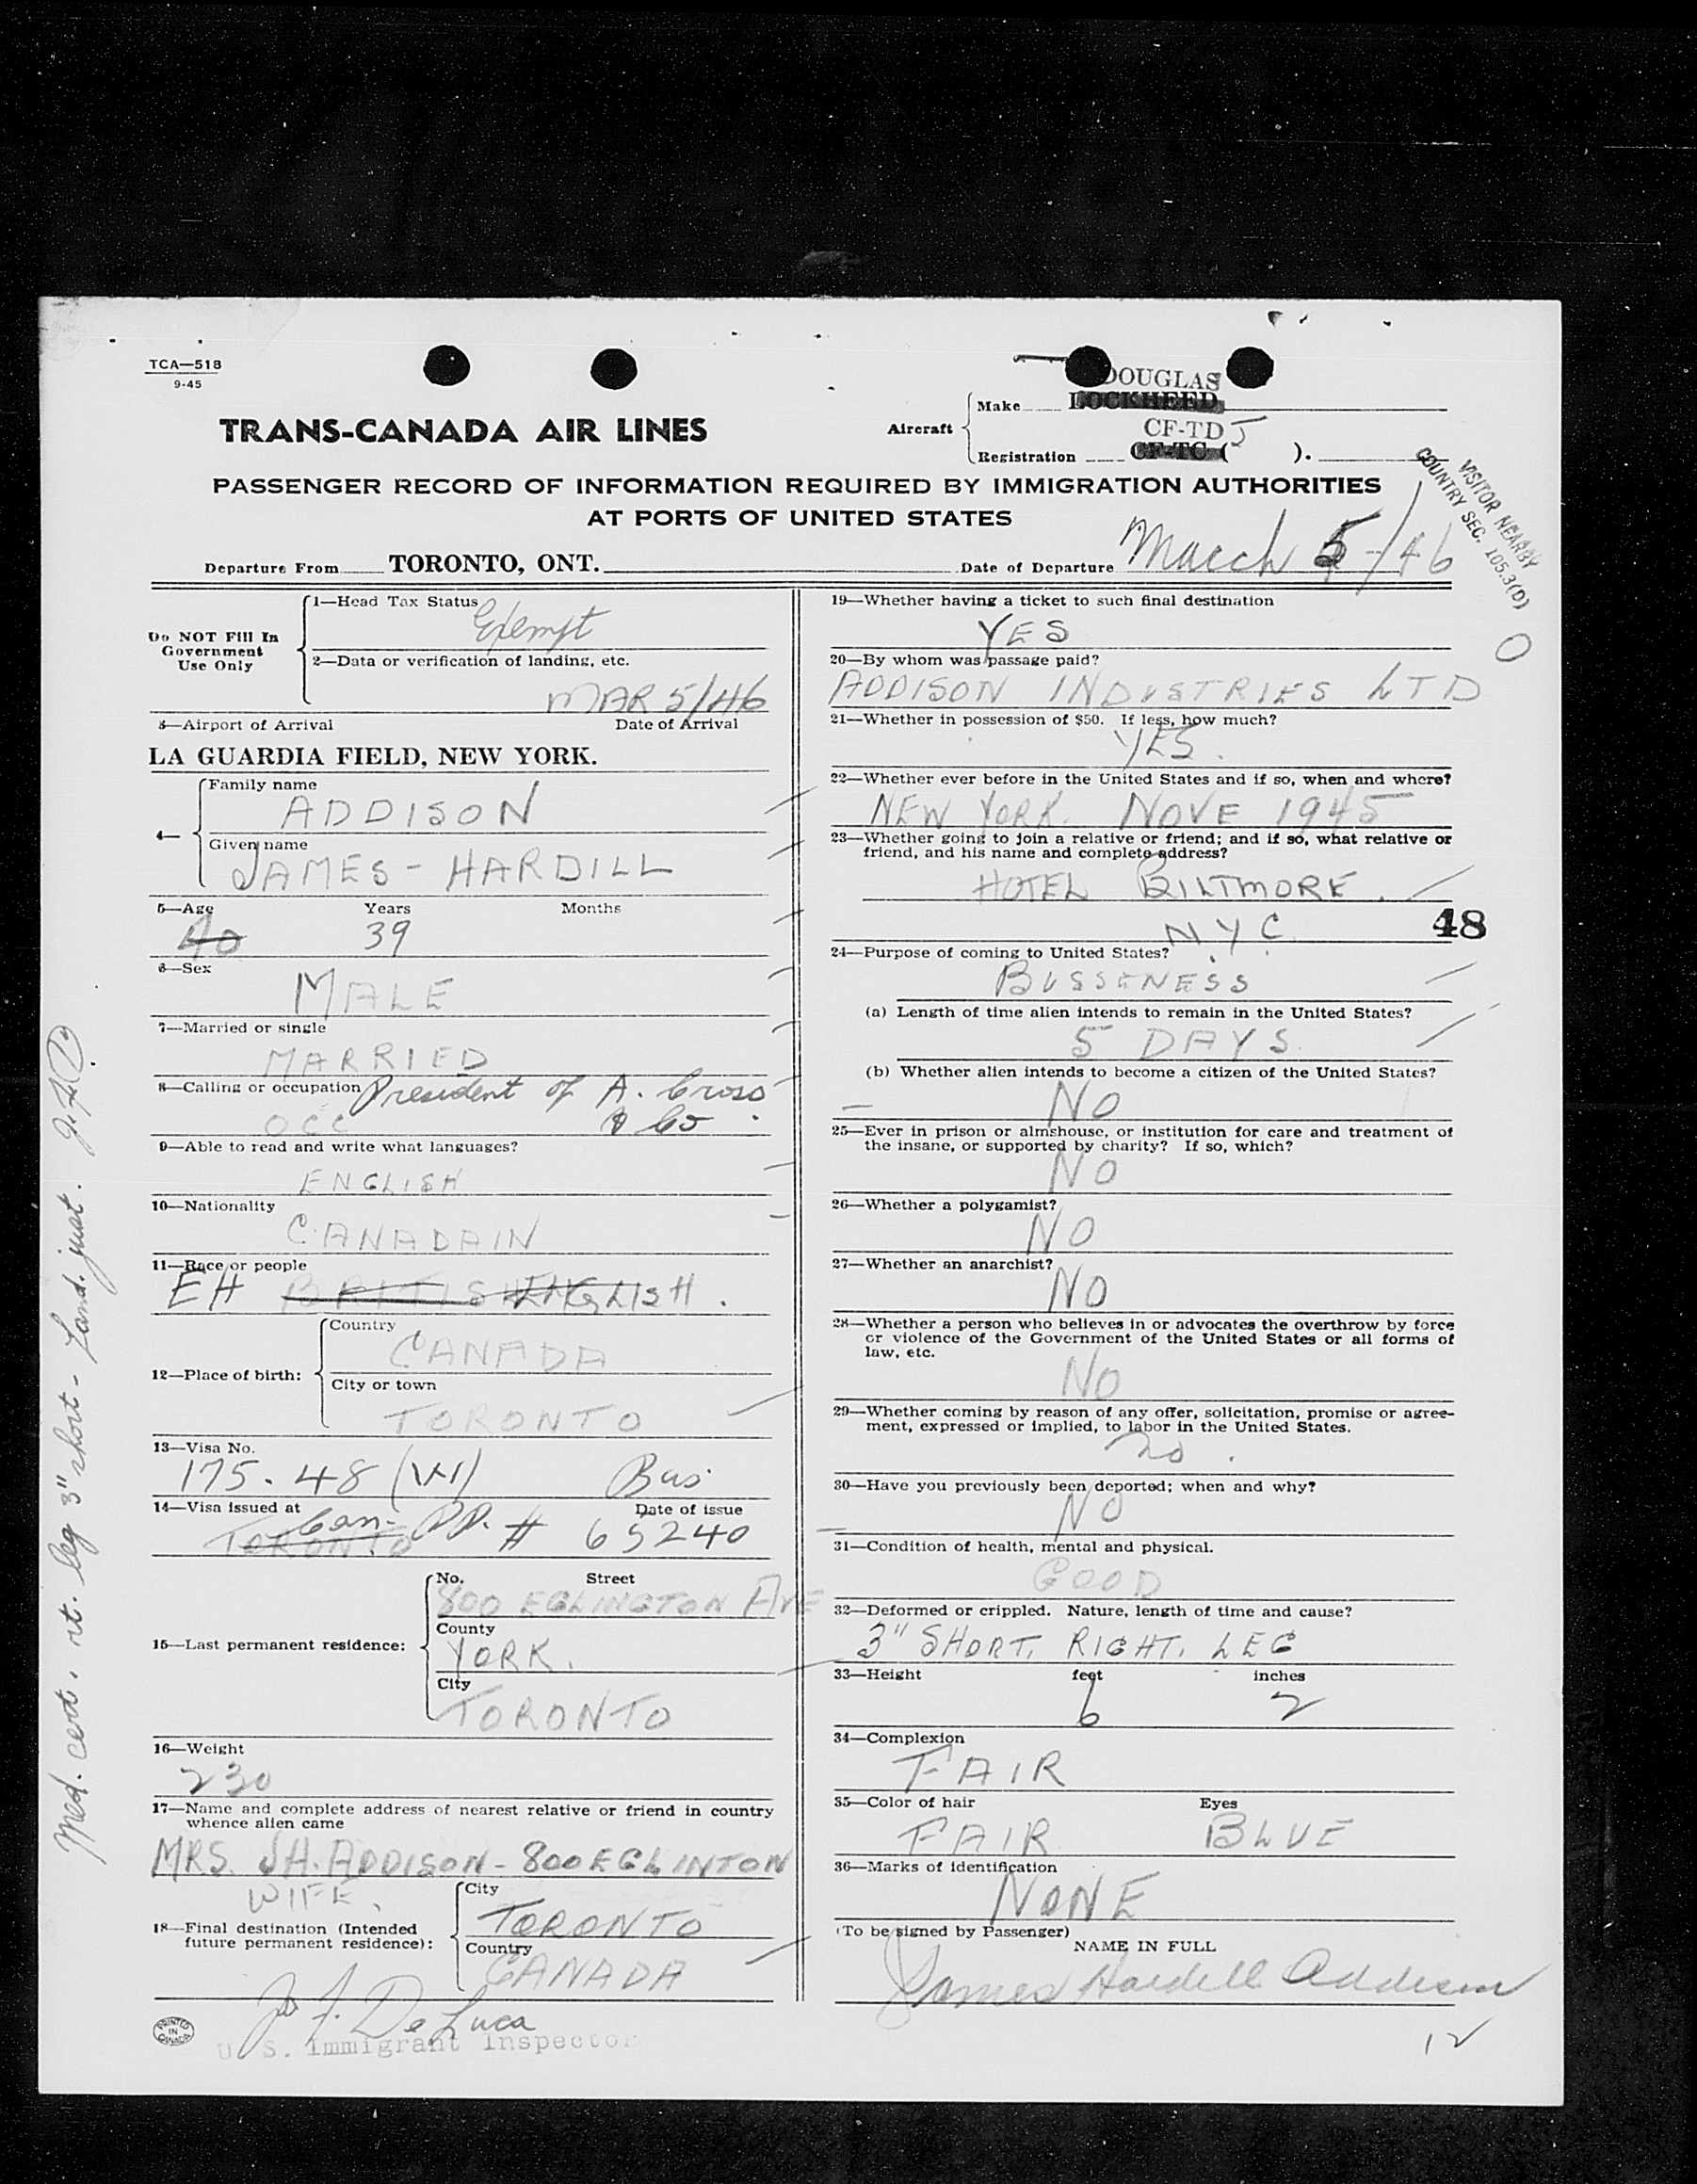 TCA—518
9-45
TRANS-CANADA AIR LINES
DOUGLAS
Aircraft
Make LOCKHEED
CF-TD J
Registration CF-TC ( ).
VISITOR NEARBY
COUNTRY SEC. 105.3(D)
PASSENGER RECORD OF INFORMATION REQUIRED BY IMMIGRATION AUTHORITIES
AT PORTS OF UNITED STATES
Departure From TORONTO, ONT. Date of Departure March 5/46
Do NOT Fill In
Government
Use Only
1—Head Tax Status Exempt
2—Data or verification of landing, etc.
MAR 5/46
3—Airport of Arrival Date of Arrival
LA GUARDIA FIELD, NEW YORK.
4—
Family name
ADDISON
Given name
JAMES - HARDILL
5—Age Years Months
40 39
6—Sex
MALE
7—Married or single
MARRIED
8—Calling or occupation President of A. Cross
OCC & Co.
9—Able to read and write what languages?
ENGLISH
10—Nationality
CANADAIN
11—Race or people
EH BRITISH ENGLISH.
12—Place of birth:
Country
CANADA
City or town
TORONTO
13—Visa No.
175.48 (VI) Bus.
14—Visa issued at Date of issue
TORONTO Can. PP. # 65240
15—Last permanent residence:
No. Street
800 EGLINGTON AVE
County
YORK.
City
TORONTO
16—Weight
230
17—Name and complete address of nearest relative or friend in country
whence alien came
MRS. JH. ADDISON - 800 EGLINTON
WIFE.
18—Final destination (Intended
future permanent residence):
City
TORONTO
Country
CANADA
Jas F. De Luca
U. S. Immigrant Inspector
PRINTED
IN
CANADA
19—Whether having a ticket to such final destination
YES
20—By whom was passage paid?
ADDISON INDUSTRIES LTD
21—Whether in possession of $50. If less, how much?
YES.
22—Whether ever before in the United States and if so, when and where?
NEW YORK. NOVE 1945
23—Whether going to join a relative or friend; and if so, what relative or
friend, and his name and complete address?
HOTEL BILTMORE.
N.Y.C. 48
24—Purpose of coming to United States?
BUSSENESS
(a) Length of time alien intends to remain in the United States?
5 DAYS.
(b) Whether alien intends to become a citizen of the United States?
NO
25—Ever in prison or almshouse, or institution for care and treatment of
the insane, or supported by charity? If so, which?
NO
26—Whether a polygamist?
NO
27—Whether an anarchist?
NO
28—Whether a person who believes in or advocates the overthrow by force
or violence of the Government of the United States or all forms of
law, etc.
NO
29—Whether coming by reason of any offer, solicitation, promise or agree-
ment, expressed or implied, to labor in the United States.
no.
30—Have you previously been deported; when and why?
NO
31—Condition of health, mental and physical.
GOOD
32—Deformed or crippled. Nature, length of time and cause?
3" SHORT. RIGHT. LEG
33—Height feet inches
6 2
34—Complexion
FAIR
35—Color of hair Eyes
FAIR BLUE
36—Marks of identification
NONE
(To be signed by Passenger)
NAME IN FULL
James Hardill Addison
12
Med. cert. rt. leg 3" short - Land. just.